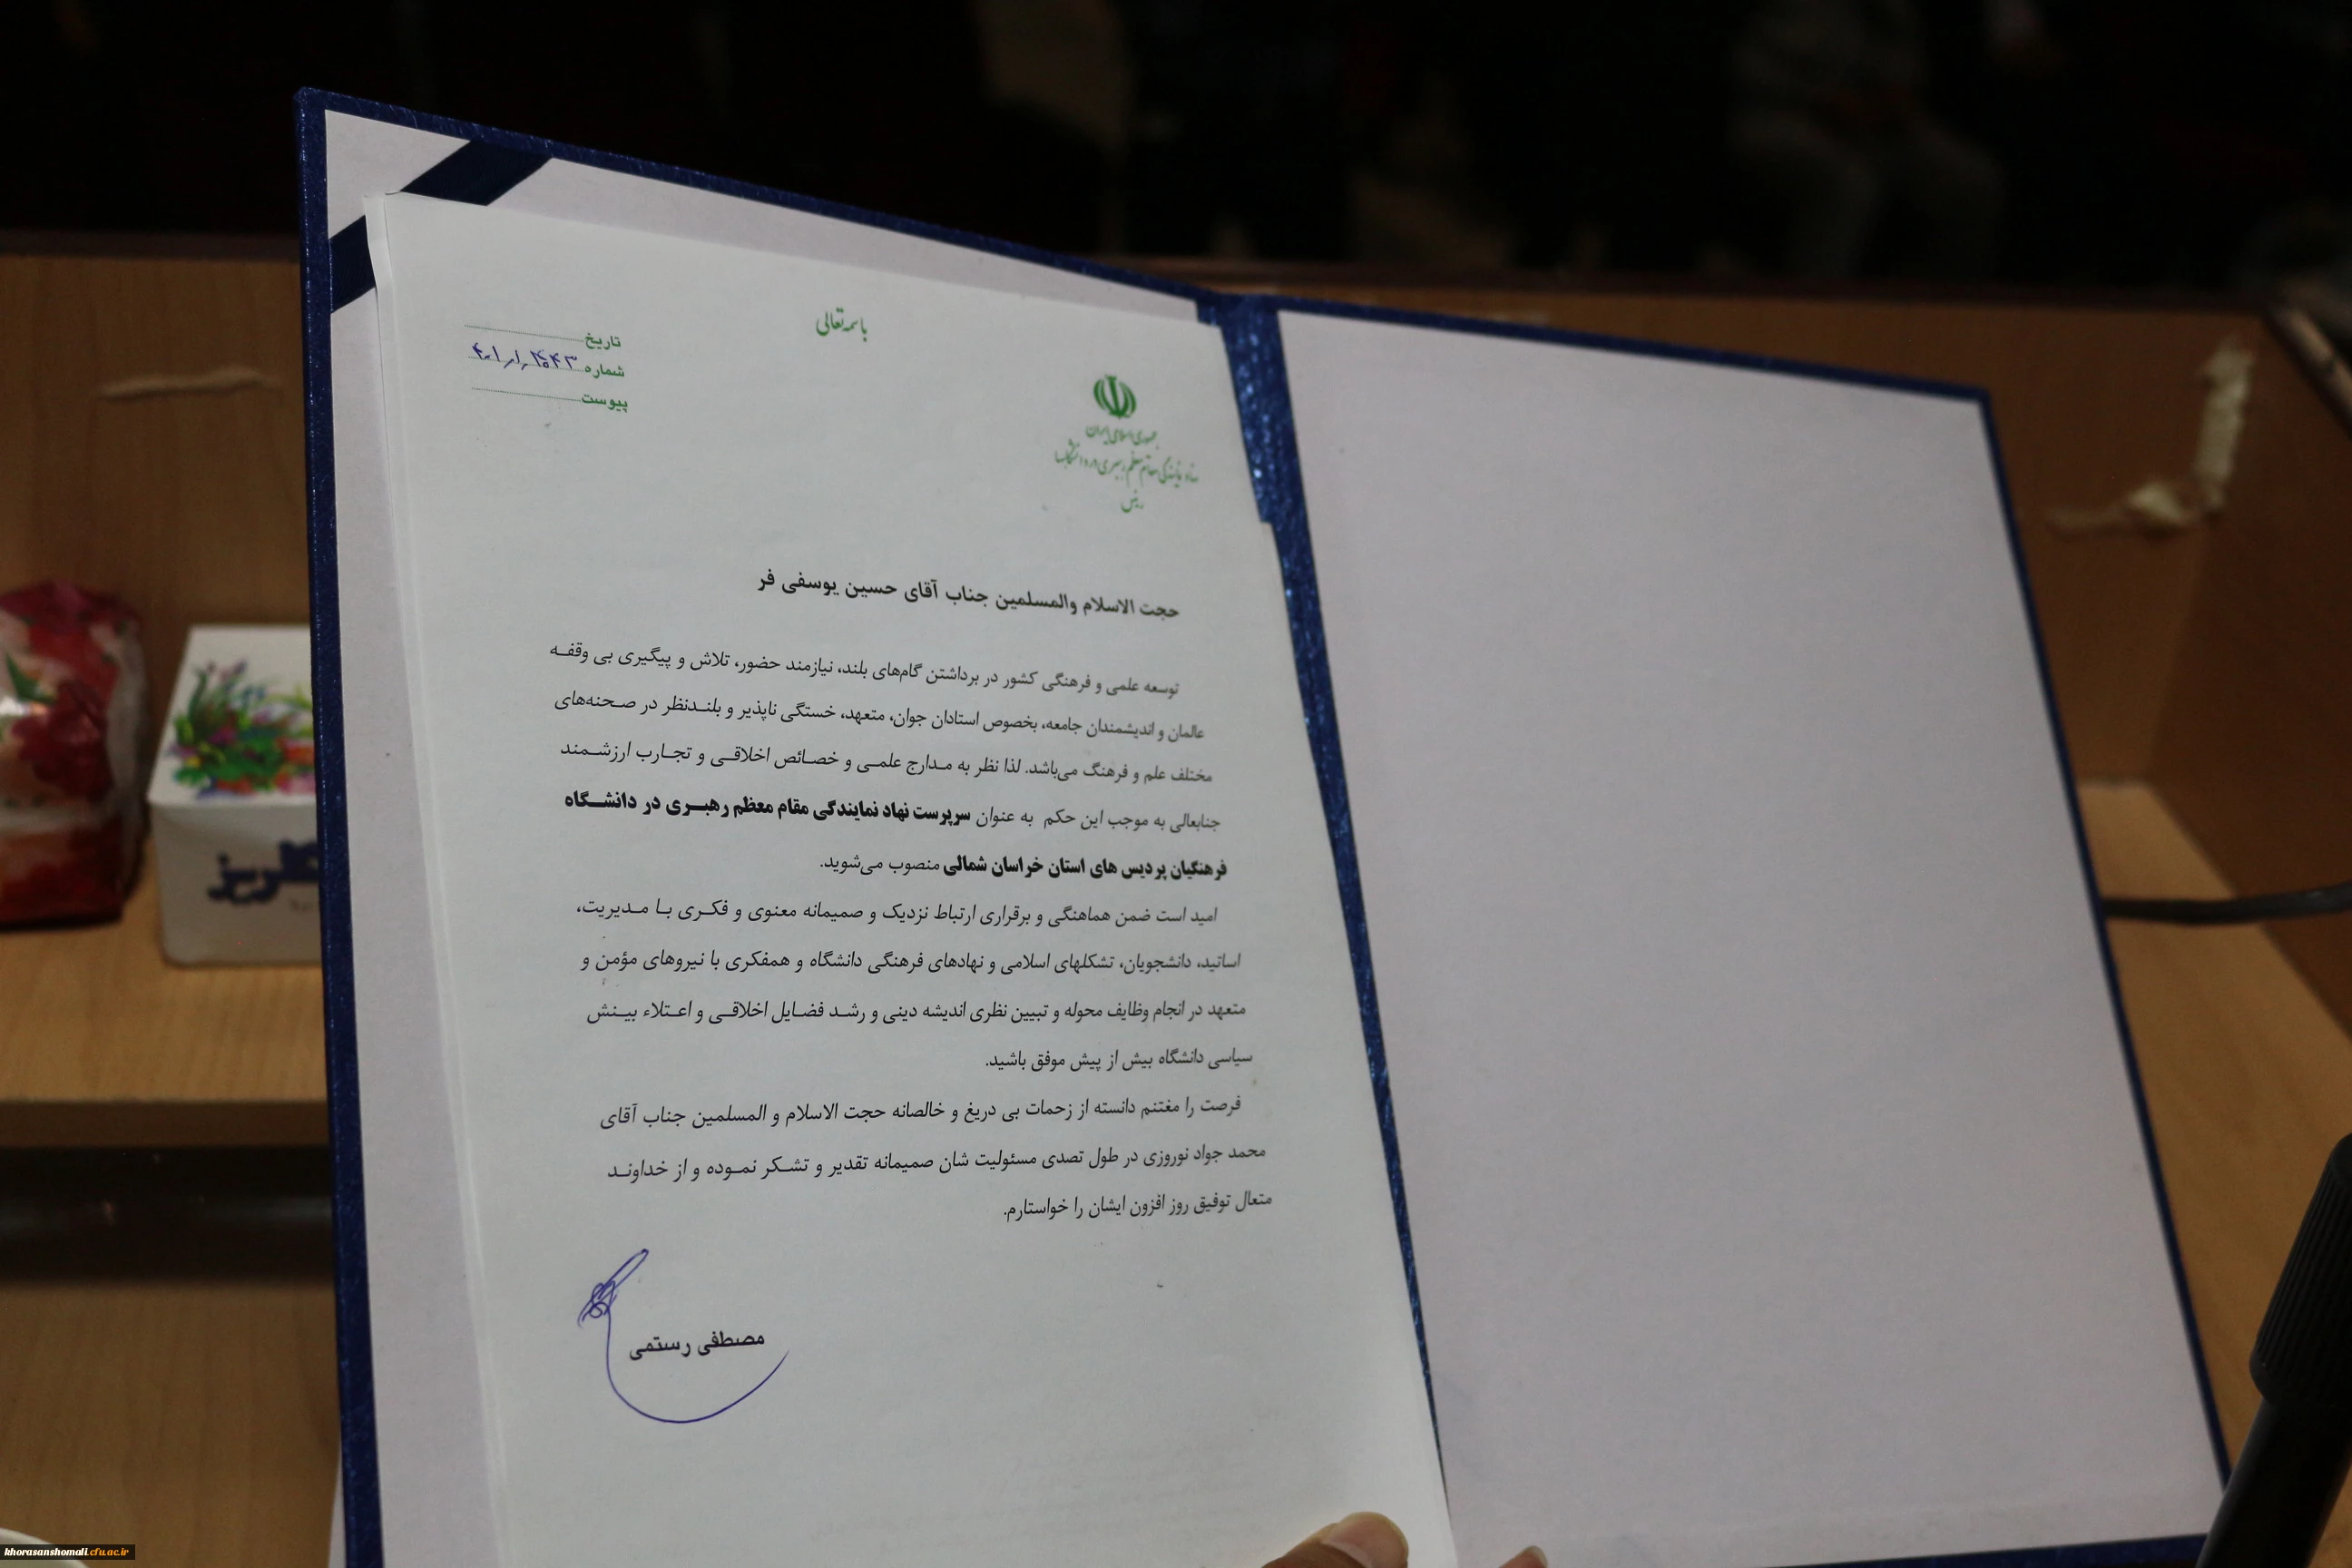 باسمه تعالی
تاریخ
شماره
پیوست
جمهوری اسلامی ایران
نهاد نمایندگی مقام معظم رهبری در دانشگاهها
رئیس
حجت الاسلام والمسلمین جناب آقای حسین یوسفی فر
توسعه علمی و فرهنگی کشور در برداشتن گام‌های بلند، نیازمند حضور، تلاش و پیگیری بی وقفه
عالمان و اندیشمندان جامعه، بخصوص استادان جوان، متعهد، خستگی ناپذیر و بلندنظر در صحنه‌های
مختلف علم و فرهنگ می‌باشد. لذا نظر به مدارج علمی و خصائص اخلاقی و تجارب ارزشمند
جنابعالی به موجب این حکم به عنوان سرپرست نهاد نمایندگی مقام معظم رهبری در دانشگاه
فرهنگیان پردیس های استان خراسان شمالی منصوب می‌شوید.
امید است ضمن هماهنگی و برقراری ارتباط نزدیک و صمیمانه معنوی و فکری با مدیریت،
اساتید، دانشجویان، تشکلهای اسلامی و نهادهای فرهنگی دانشگاه و همفکری با نیروهای مؤمن و
متعهد در انجام وظایف محوله و تبیین نظری اندیشه دینی و رشد فضایل اخلاقی و اعتلاء بینش
سیاسی دانشگاه بیش از پیش موفق باشید.
فرصت را مغتنم دانسته از زحمات بی دریغ و خالصانه حجت الاسلام و المسلمین جناب آقای
محمد جواد نوروزی در طول تصدی مسئولیت شان صمیمانه تقدیر و تشکر نموده و از خداوند
متعال توفیق روز افزون ایشان را خواستارم.
مصطفی رستمی
khorasanshomali.cfu.ac.ir